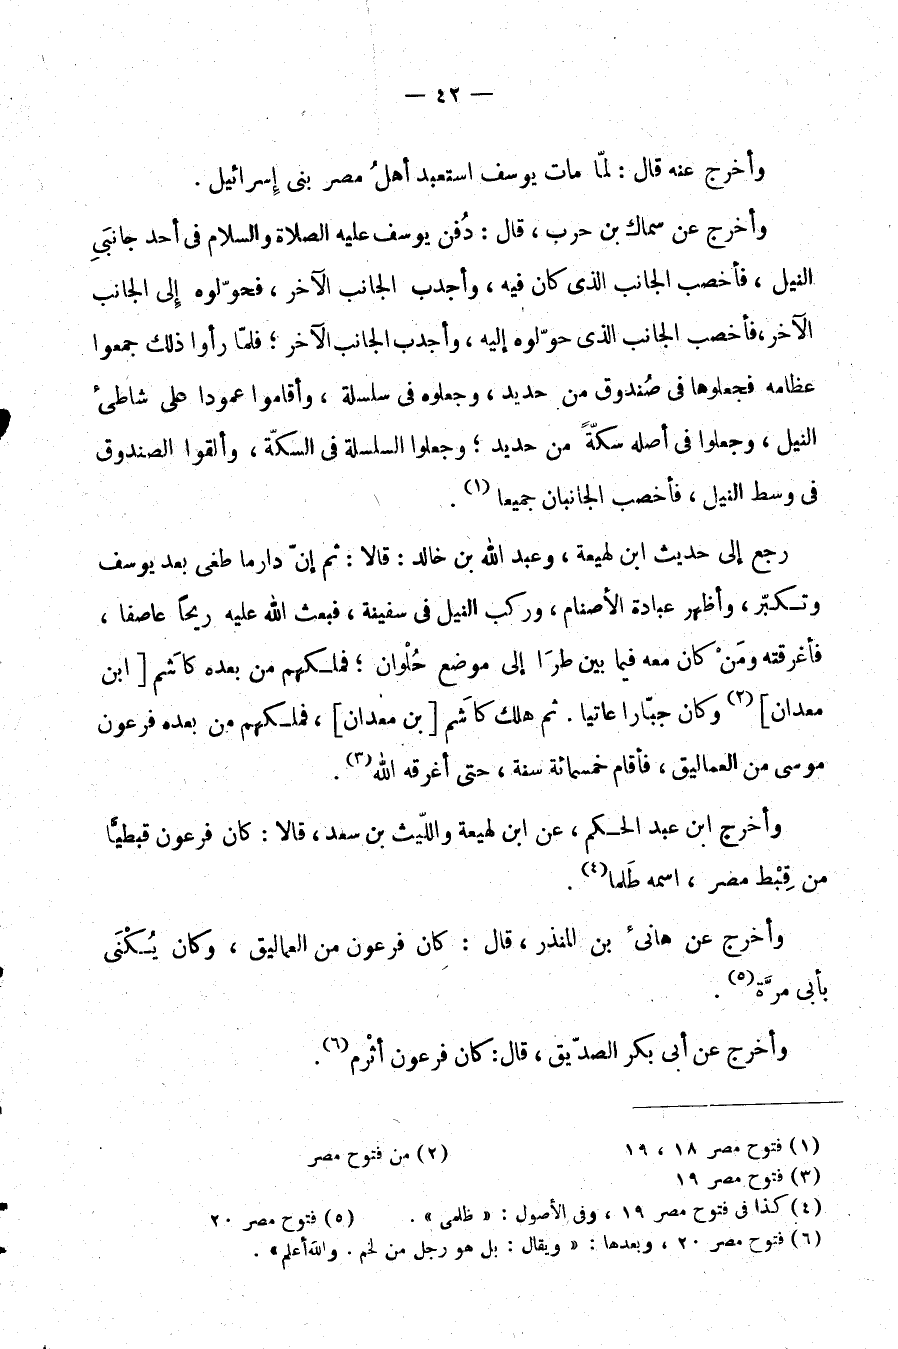 — ٤٢ —
وأخرج عنه قال : لمّا مات يوسف استعبد أهلُ مصر بنى إسرائيل .
وأخرج عن سماك بن حرب ، قال : دُفن يوسف عليه الصلاة والسلام فى أحد جانبَىِ
النيل ، فأخصب الجانب الذى كان فيه ، وأجدب الجانب الآخر ، فحوّلوه إلى الجانب
الآخر، فأخصب الجانب الذى حوّلوه إليه ، وأجدب الجانب الآخر ؛ فلمّا رأوا ذلك جمعوا
عظامه فجعلوها فى صُندوق من حديد ، وجعلوه فى سلسلة ، وأقاموا عمودا على شاطئ
النيل ، وجعلوا فى أصله سكّةً من حديد ؛ وجعلوا السلسلة فى السكّة ، وألقوا الصندوق
فى وسط النيل ، فأخصب الجانبان جميعا (١) .
رجع إلى حديث ابن لهيعة ، وعبد الله بن خالد : قالا : ثم إنّ دارما طغى بعد يوسف
وتكبّر ، وأظهر عبادة الأصنام ، وركب النيل فى سفينة ، فبعث الله عليه ريحاً عاصفا ،
فأغرقته ومَنْ كان معه فيما بين طرَا إلى موضع حُلْوان ؛ فملكهم من بعده كاشَم [ ابن
معدان] (٢) وكان جبّارا عاتيا . ثم هلك كاشَم [بن معدان] ، فملكهم من بعده فرعون
موسى من العماليق ، فأقام خمسمائة سنة ، حتى أغرقه الله (٣) .
وأخرج ابن عبد الحكم ، عن ابن لهيعة والليّث بن سعد ، قالا : كان فرعون قبطيًّا
من قِبْط مصر ، اسمه طَلما (٤) .
وأخرج عن هانئ بن المنذر ، قال : كان فرعون من العماليق ، وكان يُكْنَى
بأبى مرَّة (٥) .
وأخرج عن أبى بكر الصدّيق ، قال: كان فرعون أثْرم (٦) .
(١) فتوح مصر ١٨ ، ١٩ (٢) من فتوح مصر
(٣) فتوح مصر ١٩
(٤) كذا فى فتوح مصر ١٩ ، وفى الأصول : « ظلمى » . (٥) فتوح مصر ٢٠
(٦) فتوح مصر ٢٠ ، وبعدها : « ويقال : بل هو رجل من لخم . والله أعلم » .